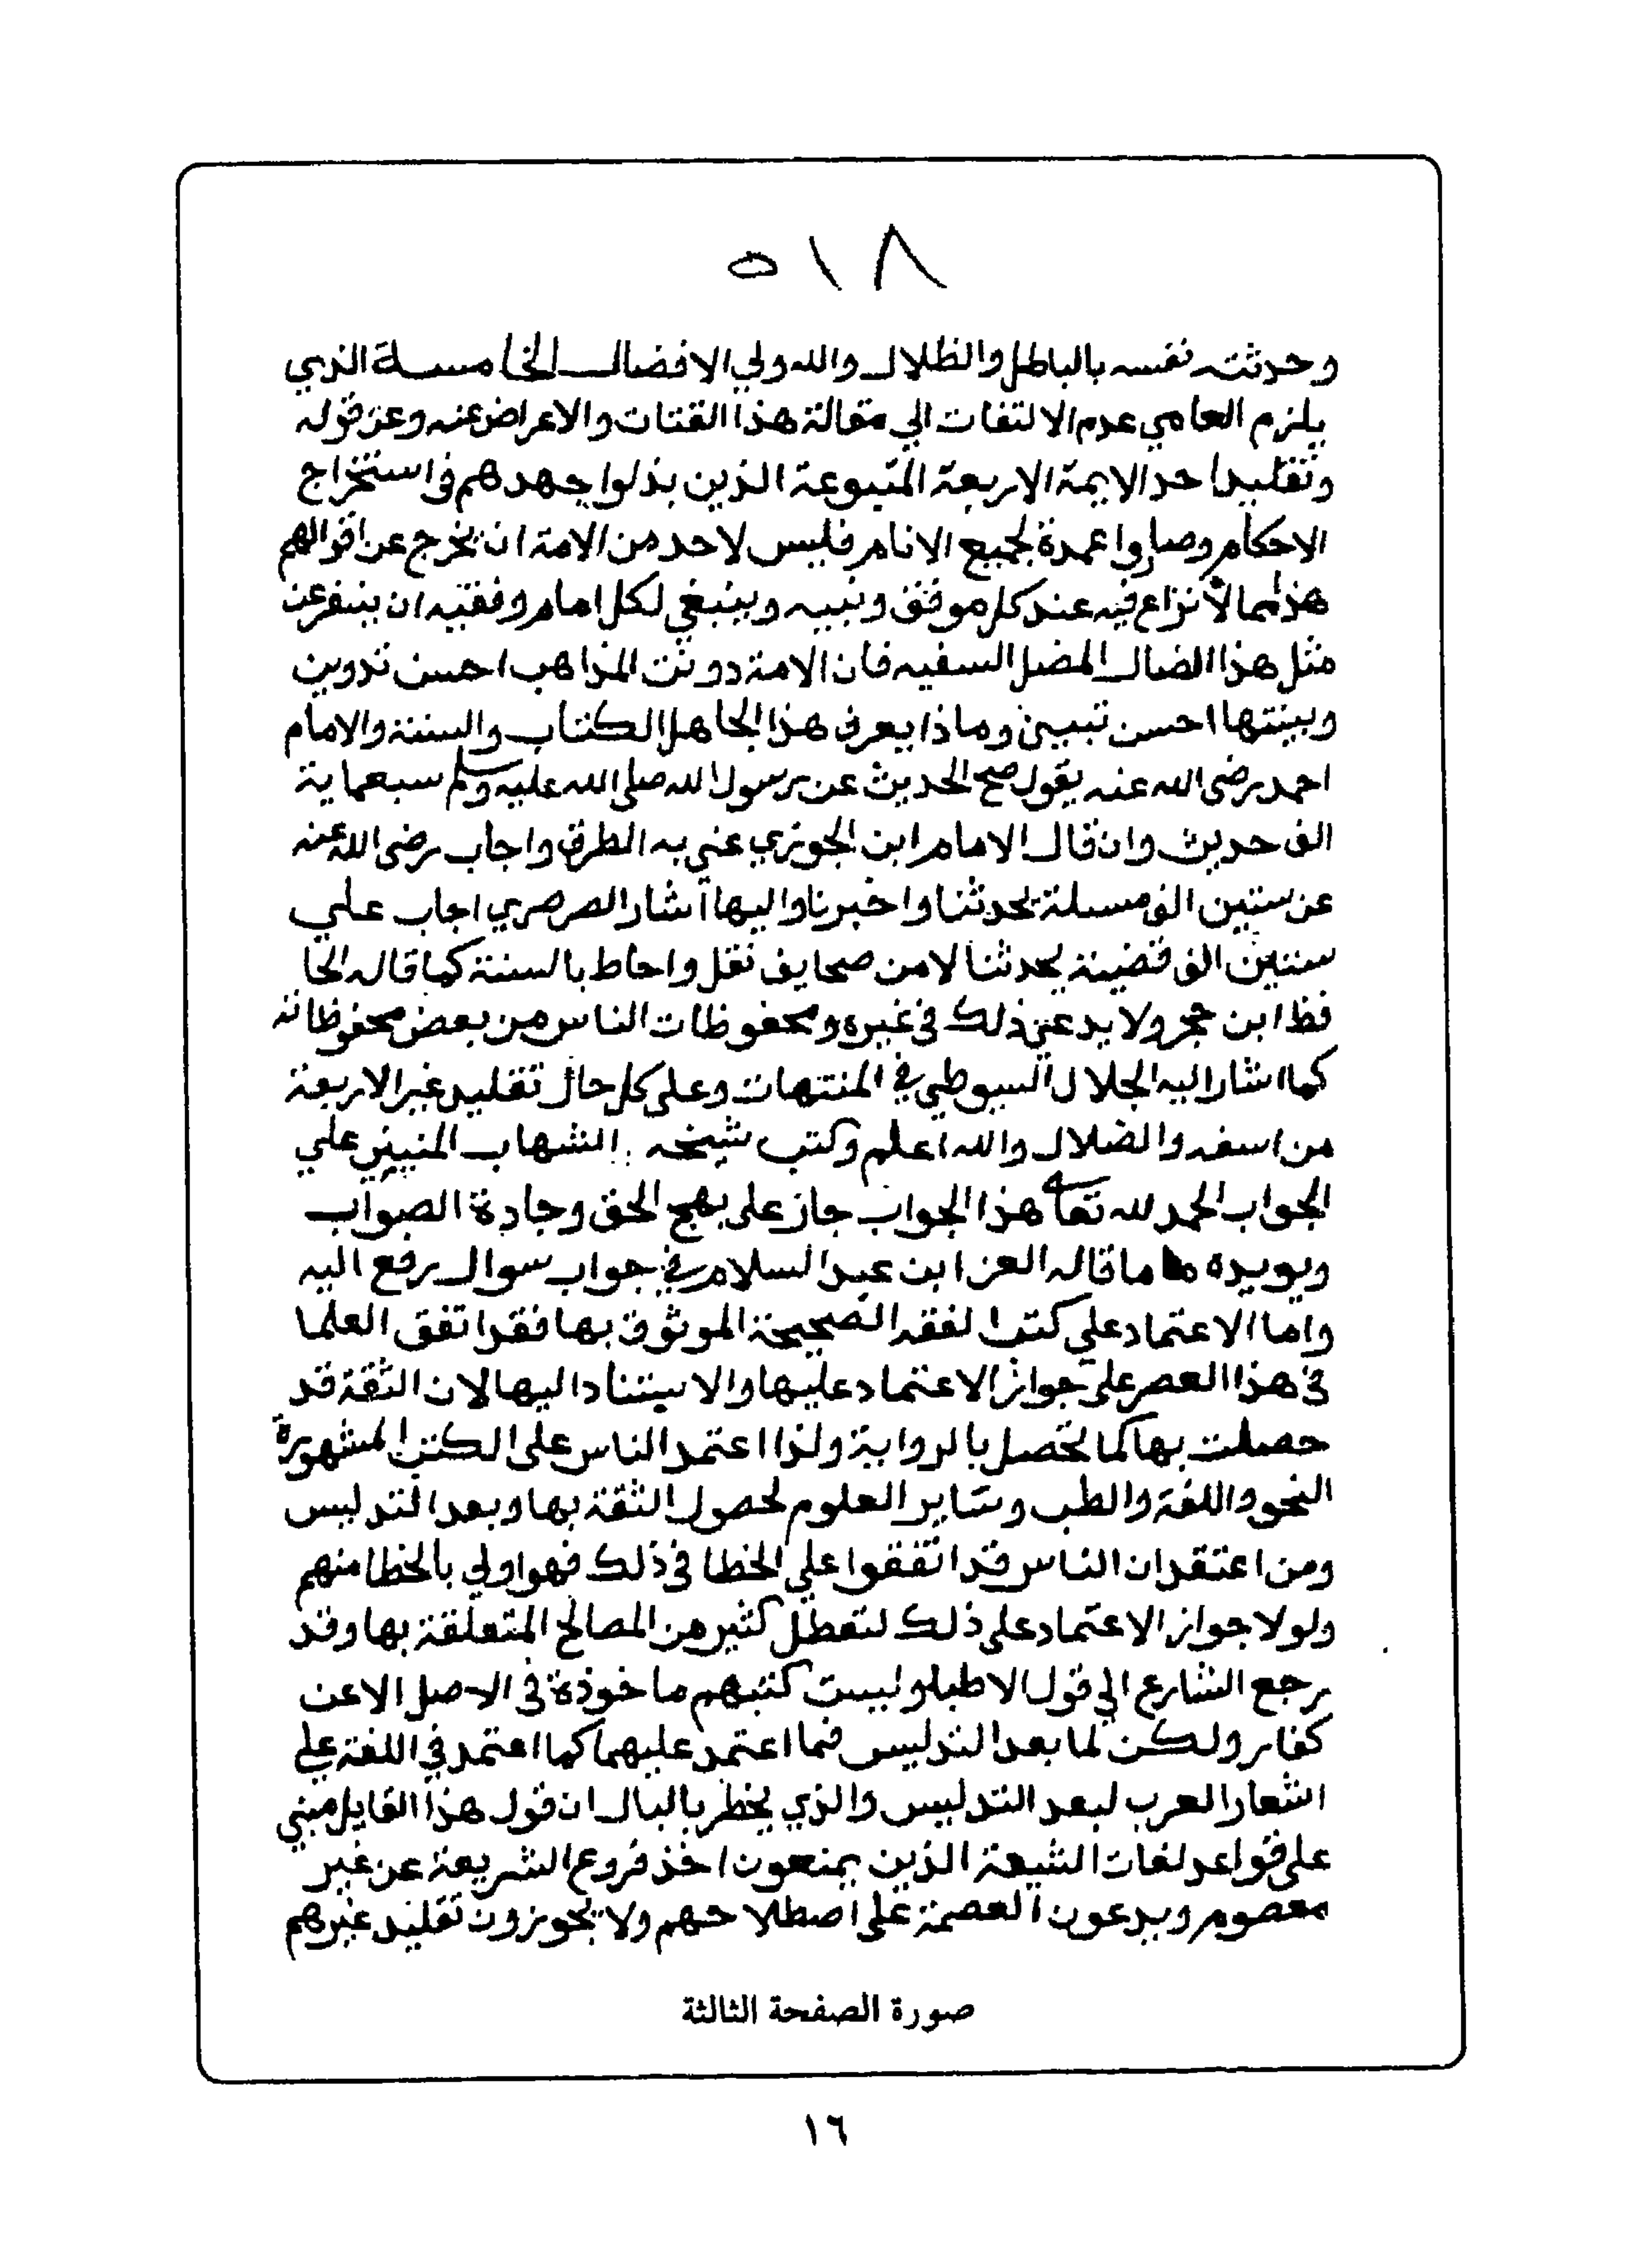 ٥١٨
وحدثته نفسه بالباطل والظلال والله ولي الافضال الخامسة الذي
يلزم العامي عدم الالتفات الي مقالة هذا القتات والاعراض عنه وعن قوله
وتقليد احد الايمة الاربعة المتبوعة الذين بذلوا جهدهم في استخراج
الاحكام وصاروا عمدة لجميع الانام فليس لاحد من الامة ان يخرج عن اقوالهم
هذا مما لا نزاع فيه عند كل موفق ونبيه وينبغي لكل امام وفقيه ان ينفر عن
مثل هذا الضال المضل السفيه فان الامة دونت المذاهب احسن تدوين
وبينتها احسن تبيين وماذا يعرف هذا الجاهل الكتاب والسنة والامام
احمد رضي الله عنه يقول صح الحديث عن رسول الله صلي الله عليه وسلم سبعماية
الف حديث وان قال الامام ابن الجوزي عني به الطرق واجاب رضي الله عنه
عن ستين الف مسلة بحدثنا واخبرنا واليها اشار الصرصري اجاب علي
ستين الف قضية بحدثنا لا من صحايف نقل واحاط بالسنة كما قاله الحا
فظ ابن حجر ولا يدعي ذلك في غيره ومحفوظات الناس من بعض محفوظاته
كما اشار اليه الجلال السيوطي في المنتهات وعلى كل حال تقليد غير الاربعة
من اسفه والضلال والله اعلم وكتب شيخه الشهاب المنيني علي
الجواب الحمد لله تعالى هذا الجواب جاز على نهج الحق وجادة الصواب
ويويده ما قاله العز ابن عبد السلام في جواب سوال رفع اليه
واما الاعتماد علي كتب الفقه الصحيحة الموثوق بها فقد اتفق العلما
في هذا العصر على جواز الاعتماد عليها والاستناد اليها لان الثقة قد
حصلت بها كما تحصل بالرواية ولذا اعتمد الناس على الكتب المشهورة
النحو واللغة والطب وساير العلوم لحصول الثقة بها وبعد التدليس
ومن اعتقد ان الناس قد اتفقوا علي الخطا في ذلك فهو اولي بالخطا منهم
ولولا جواز الاعتماد على ذلك لتعطل كثير من المصالح المتعلقة بها وقد
رجع الشارع الي قول الاطبا وليست كتبهم ماخوذة في الاصل الا عن
كفار ولكن لما بعد التدليس فيها اعتمد عليهما كما اعتمد في اللغة علي
اشعار العرب لبعد التدليس والذي يخطر بالبال ان قول هذا القايل مبني
على قواعد لغات الشيعة الذين يمنعون اخذ فروع الشريعة عن غير
معصوم ويدعون العصمة على اصطلاحهم ولا يجوزون تقليد غيرهم
صورة الصفحة الثالثة
١٦